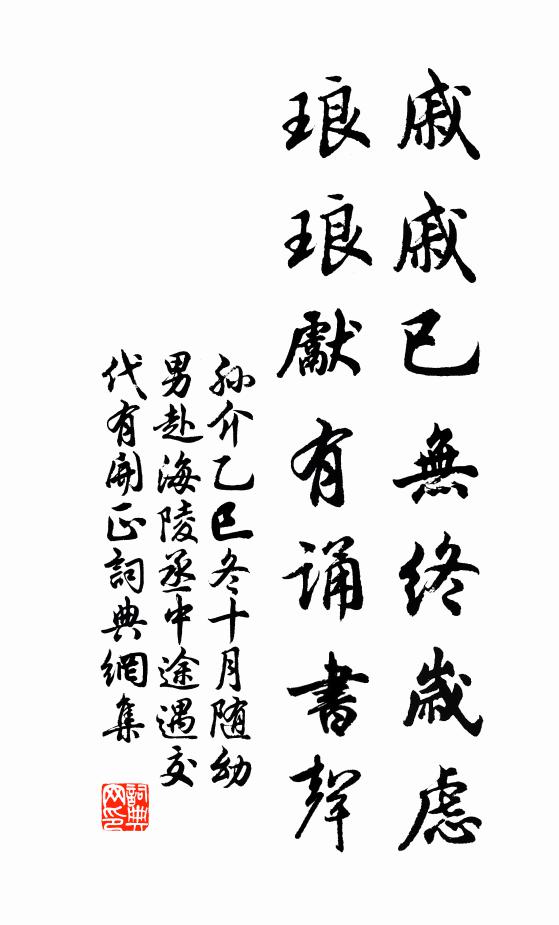 戚戚已無終歲虑
琅琅獻有誦書聲
孫介乙巳冬十月随幼
男赴海陵丞中途遇交
代有開正詞典網集
詞典
网印